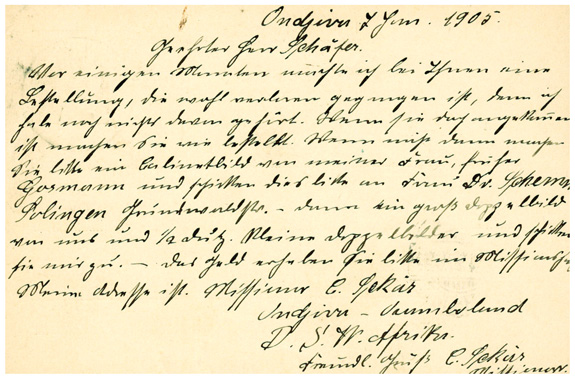 Ondjiva 7 Jan. 1905.
Geehrter Herr Schäfer.
Vor einigen Monaten machte ich bei Ihnen eine
Bestellung, die wohl verloren gegangen ist, denn ich
habe noch nichts davon gehört. Wenn sie doch angekommen
ist machen Sie wie bestellt. Wenn nicht dann machen
Sie bitte ein Cabinetbild von meiner Frau, früher
und schicken dies bitte an Frau Dr.
Solingen Grünewaldstr. – dann ein groß Doppelbild
von uns und ½ Dutz. kleine Doppelbilder und schicken
sie mir zu. – Das Geld erheben Sie bitte im
Meine Adresse ist. Missionar
Ondjiva – Ovamboland
D. S. W. Afrika.
Freundl. Gruß
Missionar.